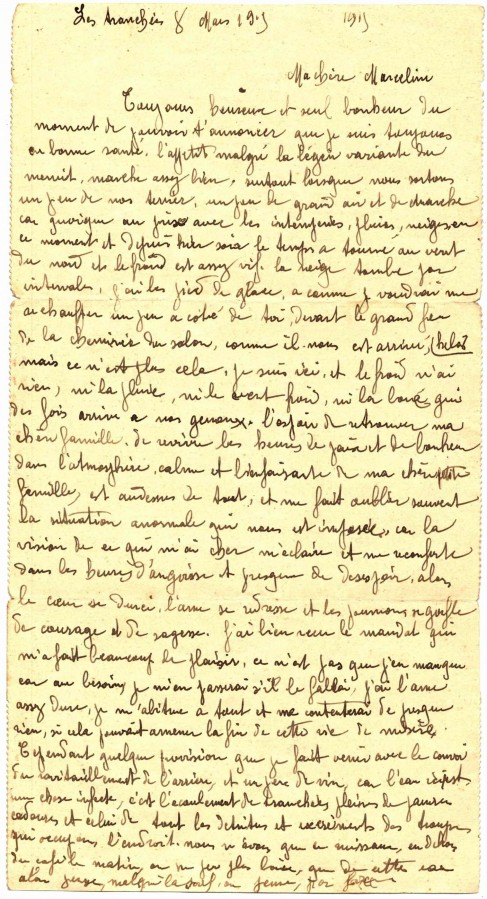 Les tranchées 8 Mars 1915 1915
Ma chère Marceline
Toujours heureux et seul bonheur du
moment de pouvoir t'annoncer que je suis toujours
en bonne santé. l'appetit malgré la légère variante du
menuit, marche assez bien, surtout lorsque nous sortons
un peu de nos terrier, un peu de grand air et de marche
car quoique au prise avec les intemperies, pluies, neiges, en
ce moment et depuis hier soir le temps a tourné au vent
du nord et le froid est assez vif. la neige tombe par
intervales, j'ai les pied de glace, a comme je voudrai me
rechauffer un peu a coté de toi, devant le grand feu
de la cheminée du salon, comme il nous est arrivé, (helas
mais ce n'est plus cela, je suis ici, et le froid n'ai
rien, ni la pluie, ni le vent froid, ni la boue, qui
des fois arrive a nos genoux. l'espoir de retrouver ma
chère famille. de revivre les heures de paix et de bonheur
dans l'atmosphère, calme et bienfaisante de ma chère petite
famille, est audessus de tout, et me fait oublier souvent
la situation anormale qui nous est imposée, car la
vision de ce qui m'ai cher m'éclaire et me reconforte
dans les heures d'angoisse et presque de desespoir, alors
le cœur se durci, l'ame se redresse et les poumons se gonfle
de courage et de sagesse. J'ai bien recu le mandat qui
m'a fait beaucoup de plaisir, ce n'est pas que j'en manque
car au besoin je m'en passerai s'il le fallai, j'ai l'ame
assez dure, je m'abitue a tout et me contenterai de presque
rien, si cela pouvait amener la fin de cette vie de misère.
Cependant quelque provision que je fait venir avec le convoi
du ravitaillement de l'arriere, et un peu de vin, car l'eau ici est
une chose infecte, c'est l'ecoulement de tranchées pleines de
cadavres et celui de tout les detritus et excrements des troupes
qui occupent l'endroit. nous n'avons que ce ruisseau, en dehors
du café le matin, on ne peu plus boire, que de cette eau
malgré la soif, on